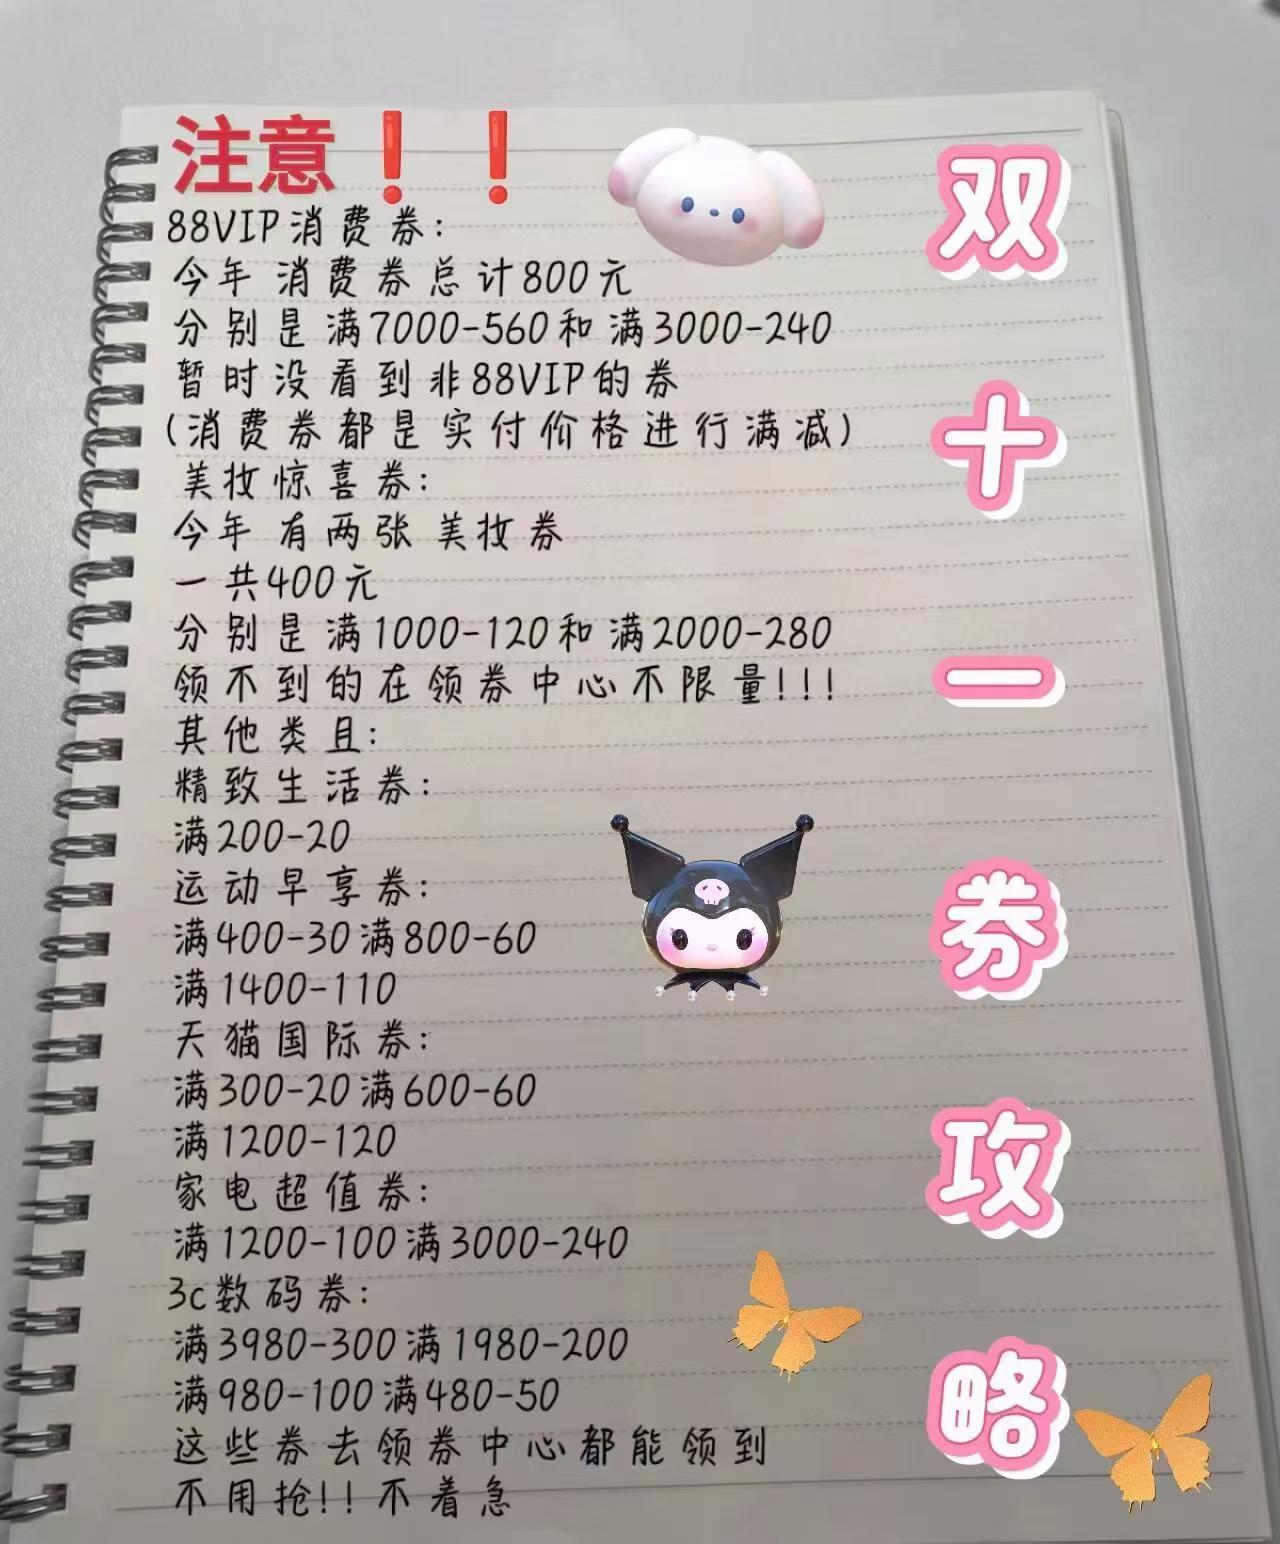 注意❗❗
88VIP消费券:
今年 消费券总计800元
分别是满7000-560和满3000-240
暂时没看到非88VIP的券
(消费券都是实付价格进行满减)
美妆惊喜券:
今年 有两张 美妆券
一共400元
分别是满1000-120和满2000-280
领不到的在领券中心不限量!!!
其他类且:
精致生活券:
满200-20
运动早享券:
满400-30满800-60
满1400-110
天猫国际券:
满300-20满600-60
满1200-120
家电超值券:
满1200-100满3000-240
3c数码券:
满3980-300满1980-200
满980-100满480-50
这些券去领券中心都能领到
不用抢!!不着急
双
十
一
券
攻
略